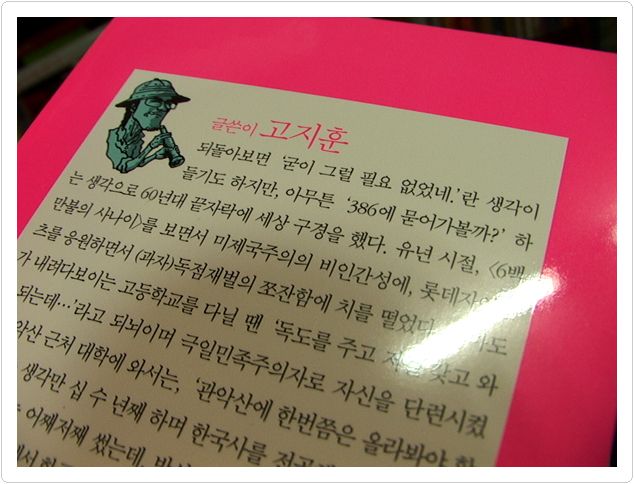 글쓴이 고지훈
되돌아보면 '굳이 그럴 필요 없었네.'란 생각이
들기도 하지만, 아무튼 '386에 묻어가볼까?' 하
는 생각으로 60년대 끝자락에 세상 구경을 했다. 유년 시절, 〈6백
만불의 사나이〉를 보면서 미제국주의의 비인간성에, 롯데자이언
츠를 응원하면서 (과자)독점재벌의 쪼잔함에 치를 떨었다.
가 내려다보이는 고등학교를 다닐 땐 '독도를 주고 갖고 와
되는데…'라고 되뇌이며 극일민족주의자로 자신을 단련시켰
악산 근처 대학에 와서는, '관악산에 한번쯤은 올라봐야
생각만 십 수 년째 하며 한국사를
어찌저찌 썼는데,